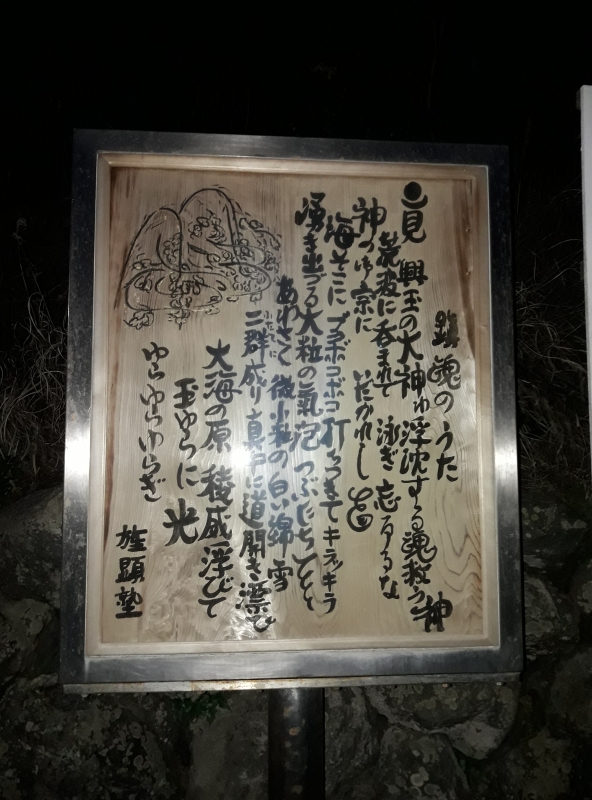 鎮魂のうた
二見興玉の大神は浮沈する魂救う神
荒波に呑まれて 泳ぎ忘るるな
神つゆ宗に いだかれし
海そこに ブクボコボコ打ちつきて キラキラ
湧き出づる大粒の気泡 つぶだち
あわさく 微小粒の白い綿雪
二群成り 真に道開き漂ひ
ふたむれに
大海の原 稜威浮びて
玉ゆらに 光
ゆらゆらゆらぎ
顕塾